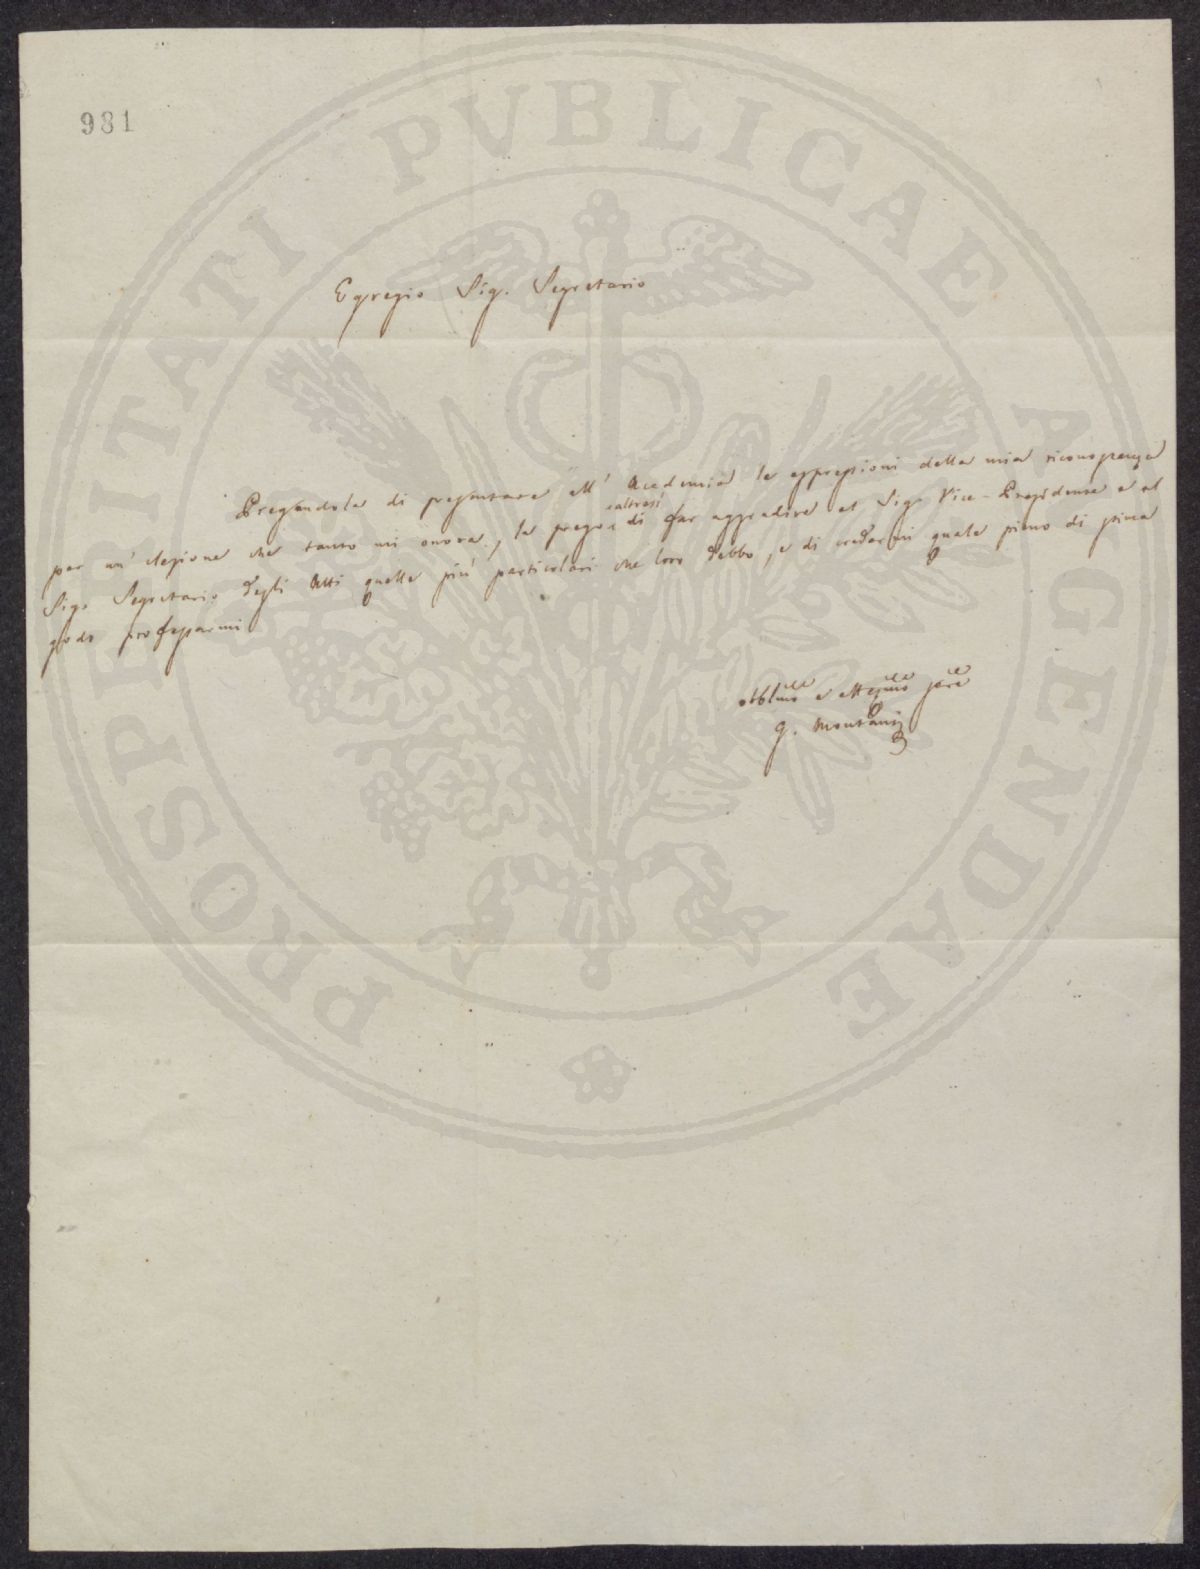 981
PROSPERITATI PVBLICAE AGENDAE
Egregio Sig. Segretario
Pregandola di presentare all' Accademia le espressioni della mia riconoscenza
per un' elezione che tanto mi onora, la prego altresì di far aggradire al Sig. Vice-Presidente e al
Sig. Segretario degli Atti quelle più particolari che loro debbo, e di credermi quale pieno di stima
godo professarmi
obblmo e
G. Montani